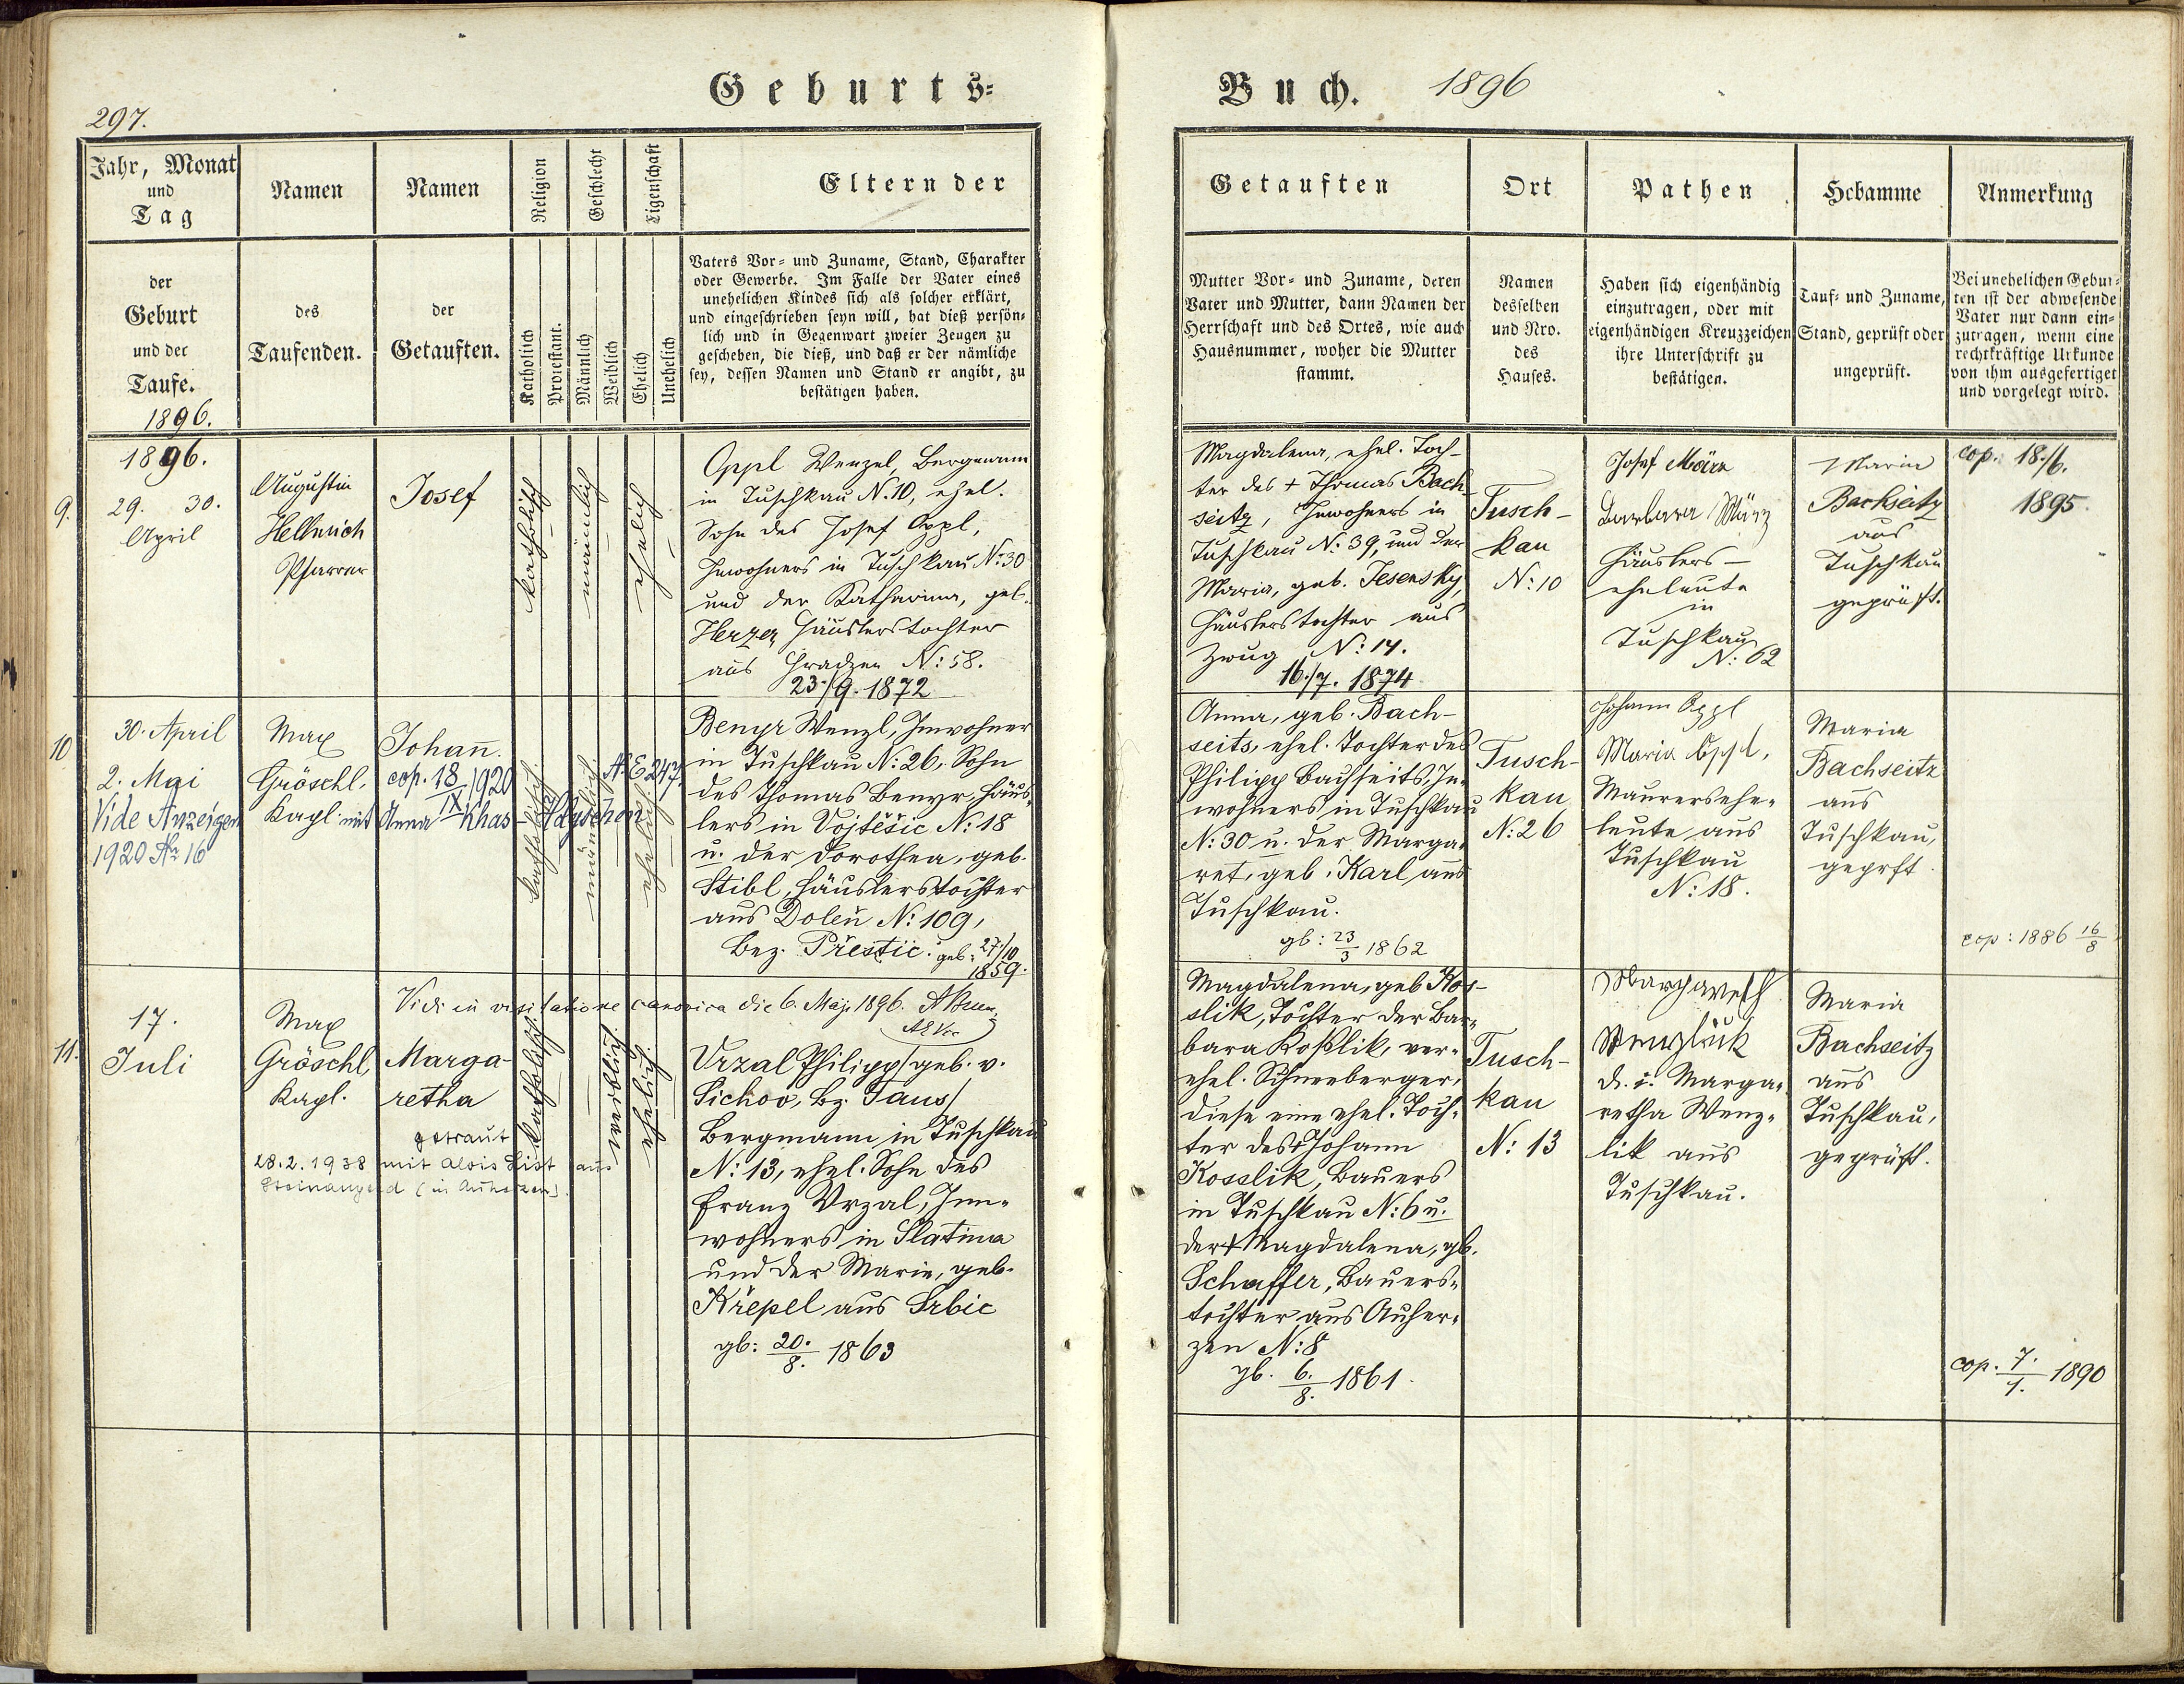 297.
Geburts=
Buch. 1896
Jahr, Monat
und
Tag
Namen
Namen
Religion
Geschlecht
Eigenschaft
Eltern der
der
Geburt
und der
Taufe.
1896.
des
Taufenden.
der
Getauften.
Katholisch
Protestant.
Männlich
Weiblich
Ehelich
Unehelich
Vaters Vor= und Zuname, Stand, Charakter
oder Gewerbe. Im Falle der Vater eines
unehelichen Kindes sich als solcher erklärt,
und eingeschrieben seyn will, hat dieß persön=
lich und in Gegenwart zweier Zeugen zu
geschehen, die dieß, und daß er der nämliche
sey, dessen Namen und Stand er angibt, zu
bestätigen haben.
Getauften
Ort
Pathen
Hebamme
Anmerkung
Mutter Vor= und Zuname, deren
Vater und Mutter, dann Namen der
Herrschaft und des Ortes, wie auch
Hausnummer, woher die Mutter
stammt.
Namen
desselben
und Nro.
des
Hauses.
Haben sich eigenhändig
einzutragen, oder mit
eigenhändigen Kreuzzeichen
ihre Unterschrift zu
bestätigen.
Tauf= und Zuname,
Stand, geprüft oder
ungeprüft.
Bei unehelichen Gebur=
ten ist der abwesende
Vater nur dann ein=
zutragen, wenn eine
rechtkräftige Urkunde
von ihm ausgefertiget
und vorgelegt wird.
9.
1896.
29. 30.
April
Augustin
Hellmich
Pfarrer
Josef
katholisch
männlich
ehelich
Oppl Wenzel, Bergmann
in Tuschkau N. 10, ehel.
Sohn des Josef Oppl,
Inwohners in Tuschkau N: 30
und der Katharina, geb.
Herzer Häuslerstochter
aus Gradzen N: 58.
23./9. 1872
Magdalena, ehel. Toch-
ter des + Thomas Bach-
seitz, Inwohners in
Tuschkau N: 39, und der
Maria, geb. Jesensky,
Häuslerstochter aus
Zwug N: 14.
16./7. 1874
Tusch-
kau
N: 10
Josef März
Barbara März
Häuslers-
eheleute
in
Tuschkau
N: 62
Maria
Bachseitz
aus
Tuschkau
geprüft.
cop. 18./6.
1895.
10
30. April
2. Mai
Vide Anzeigen
1920 No 16
Max
Gröschl,
Kapl.
Johann.
cop. 18/IX 1920
mit Anna Khas-
katholisch
männlich
ehelich
Benyr Wenzl, Inwohner
in Tuschkau N: 26, Sohn
des Thomas Benyr, Häus-
lers in Vojtěšic N: 18
u. der Dorothea, geb.
Stibl, Häuslerstochter
aus Dolen N: 109,
Bez. Přestic. geb: 27./10
1859.
Anna, geb. Bach-
seits, ehel. Tochter des
Philipp Bachseits, In-
wohners in Tuschkau
N: 30 u. der Marga-
ret, geb. Karl aus
Tuschkau.
gb: 23/3 1862
Tusch-
kau
N: 26
Johann Oppl
Maria Oppl,
Maurersehe-
leute aus
Tuschkau
N: 18.
Maria
Bachseitz
aus
Tuschkau,
geprft.
cop: 1886 16/8
Vidi in visitatione canonica die 6. Maji 1896.
11.
17.
Juli
Max
Gröschl,
Kapl.
Marga-
retha
getraut
28.2.1938 mit Alois List aus
katholisch
weiblich
ehelich
Vrzal Philipp /geb. v.
Sichov, Bz. Taus/
Bergmann in Tuschkau
N: 13, ehel. Sohn des
Franz Vrzal, Inn-
wohners in Slatina
und der Marie, geb.
Křepel aus Srbic
gb: 20./8. 1863
Magdalena, geb. Kos-
slik, Tochter der Bar-
bara Koßlik, ver-
ehel. Schneeberger,
diese eine ehel. Toch-
ter des + Johann
Kosslik, Bauers
in Tuschkau N: 6 u.
der + Magdalena, gb.
Schaffer, Bauers-
tochter aus Auher-
zen N: 8
gb. 6./8. 1861.
Tusch-
kau
N: 13
Margareth
Wenzlick
d. i. Marga-
retha Wenz-
lik aus
Tuschkau.
Maria
Bachseitz
aus
Tuschkau,
geprüft.
cop. 7./1. 1890